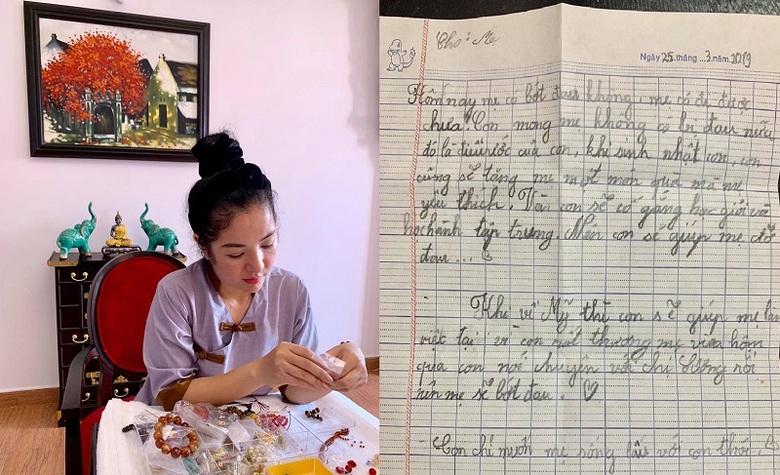 Cho: Mẹ
Ngày 25 tháng 3 năm 2019
Hôm nay mẹ có bớt đau không, mẹ có đi được
chưa? Con mong mẹ không có bị đau nữa
đó là điều ước của con, khi sinh nhật con, con
cũng sẽ tặng mẹ một món quà mà mẹ
yêu thích. Vàn con sẽ cố gắng học giỏi và
học hành tập trung. Mên con sẽ giúp mẹ đỡ
đau...
Khi về Mỹ thì con sẽ giúp mẹ làm
việc tại vì con rất thương mẹ vừa hôm
qua con nói chuyện với chị Sương rồi
nên mẹ sẽ bớt đau.
- Con chỉ muốn mẹ sống lâu với con thôi.